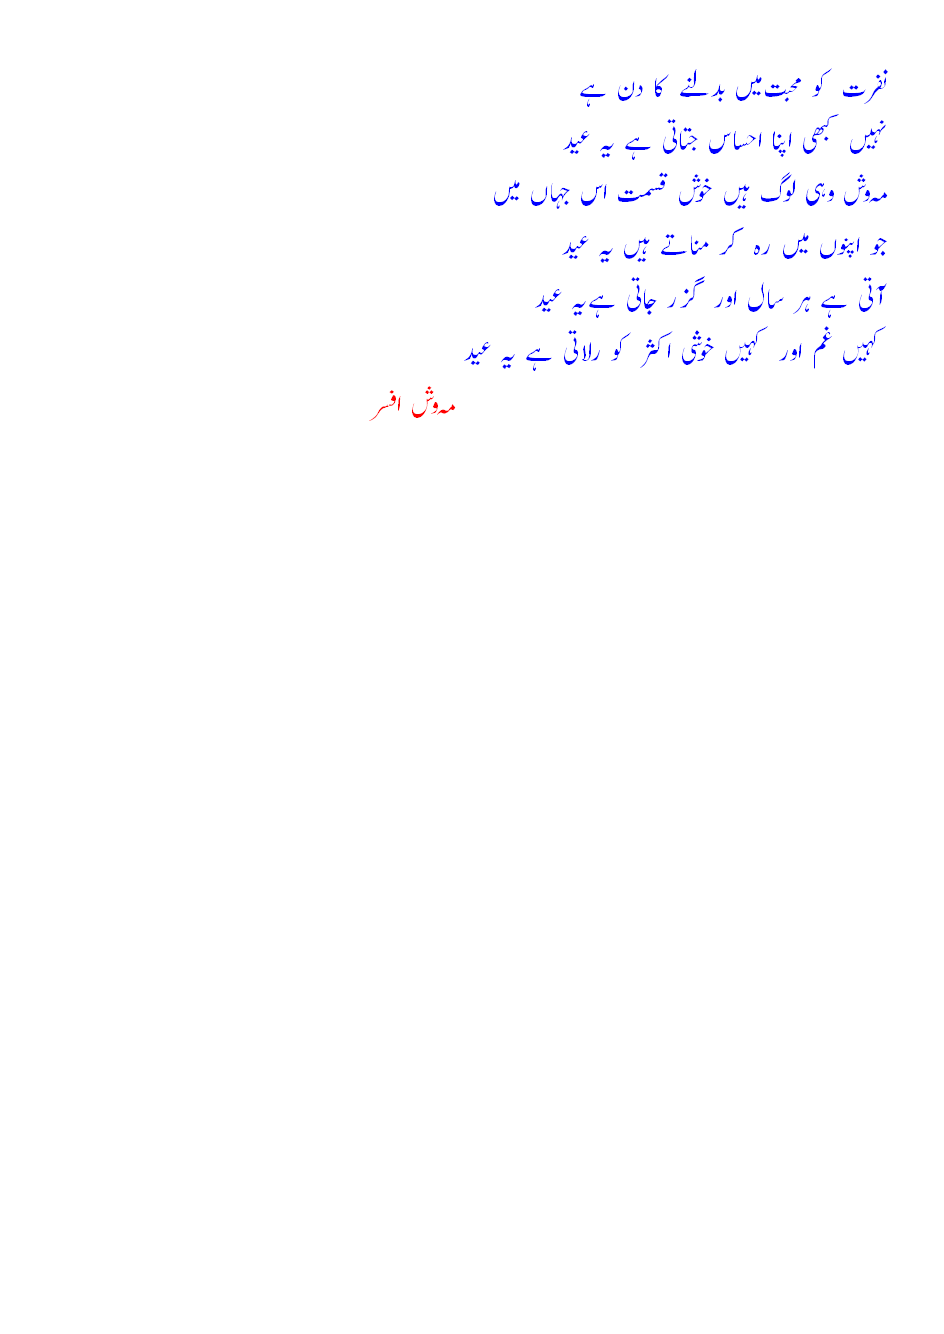 نفرت کو محبت میں بدلنے کا دن ہے
نہیں کبھی اپنا احساس جتاتی ہے یہ عید
مہوش وہی لوگ ہیں خوش قسمت اس جہاں میں
جو اپنوں میں رہ کر مناتے ہیں یہ عید
آتی ہے ہر سال اور گزر جاتی ہے یہ عید
کہیں غم اور کہیں خوشی اکثر کو رلاتی ہے یہ عید
مہوش افسر